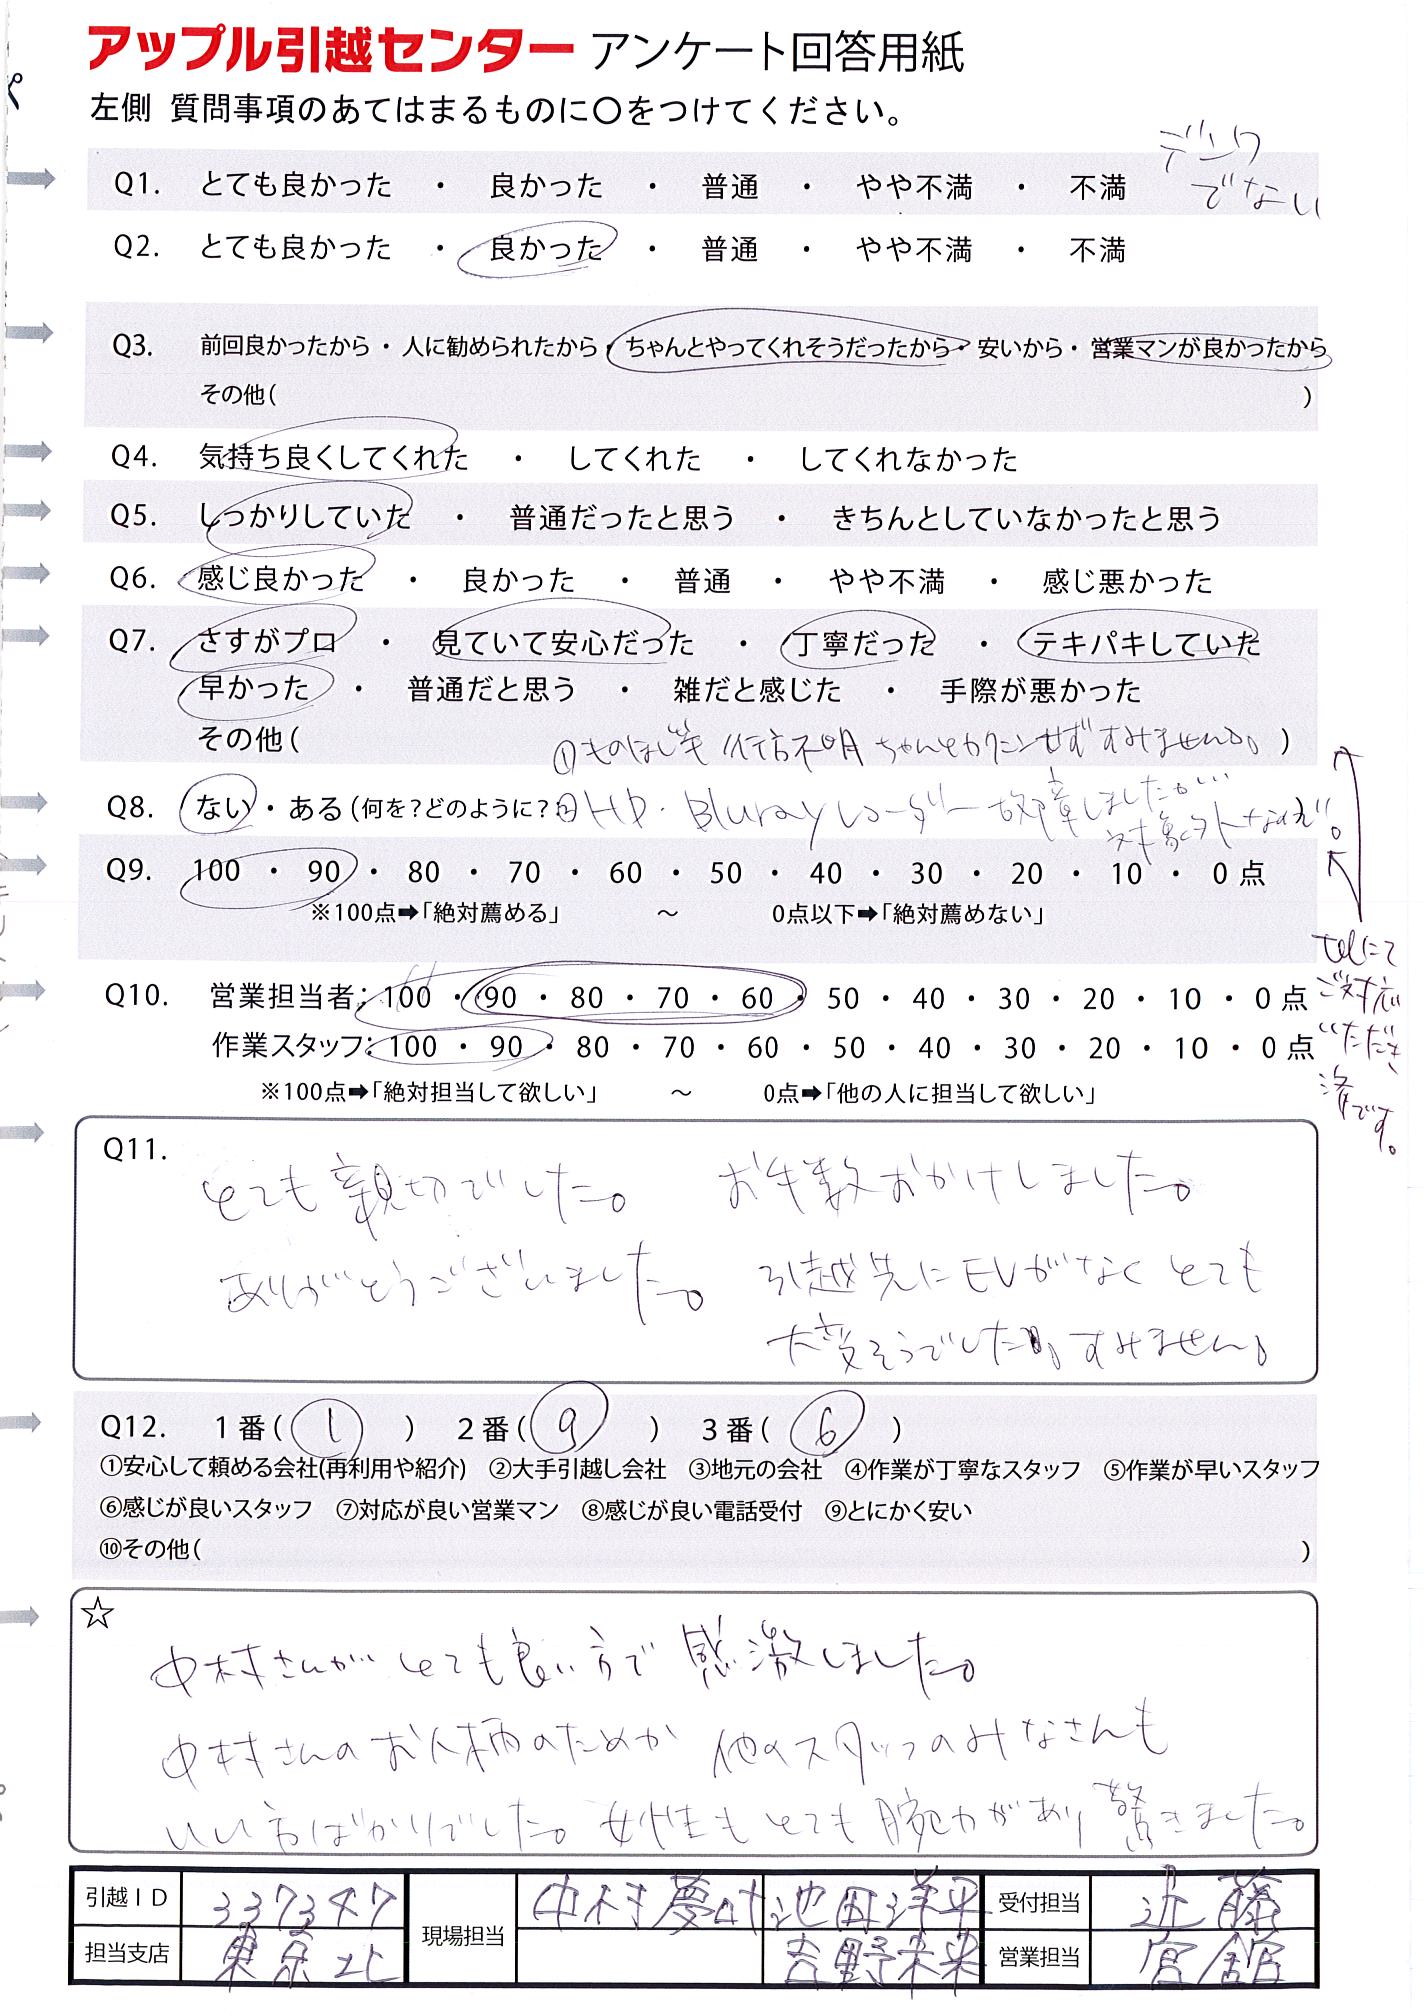 アップル引越センター アンケート回答用紙
左側 質問事項のあてはまるものに○をつけてください。
デンワ
でない
Q1. とても良かった ・ 良かった ・ 普通 ・ やや不満 ・ 不満
Q2. とても良かった ・ 良かった ・ 普通 ・ やや不満 ・ 不満
Q3. 前回良かったから・人に勧められたから・ちゃんとやってくれそうだったから・安いから・営業マンが良かったから
その他( )
Q4. 気持ち良くしてくれた ・ してくれた ・ してくれなかった
Q5. しっかりしていた ・ 普通だったと思う ・ きちんとしていなかったと思う
Q6. 感じ良かった ・ 良かった ・ 普通 ・ やや不満 ・ 感じ悪かった
Q7. さすがプロ ・ 見ていて安心だった ・ 丁寧だった ・ テキパキしていた
早かった ・ 普通だと思う ・ 雑だと感じた ・ 手際が悪かった
その他( ①ものほし竿 行方不明 ちゃんとカクニンせずすみません。)
Q8. ない・ある(何を?どのように? ②HD・Blurayレコーダー故障しましたが…
対象外なれば。
Q9. 100 ・ 90 ・ 80 ・ 70 ・ 60 ・ 50 ・ 40 ・ 30 ・ 20 ・ 10 ・ 0 点
※100点➡「絶対薦める」 ～ 0点以下➡「絶対薦めない」
telにて
ご対応
いただき
済です。
Q10. 営業担当者; 100 ・ 90 ・ 80 ・ 70 ・ 60 ・ 50 ・ 40 ・ 30 ・ 20 ・ 10 ・ 0 点
作業スタッフ; 100 ・ 90 ・ 80 ・ 70 ・ 60 ・ 50 ・ 40 ・ 30 ・ 20 ・ 10 ・ 0 点
※100点➡「絶対担当して欲しい」 ～ 0点➡「他の人に担当して欲しい」
Q11.
とても親切でした。 お手数おかけしました。
ありがとうございました。 引越先にEVがなくとても
大変そうでした。すみません。
Q12. 1番( 1 ) 2番( 9 ) 3番( 6 )
①安心して頼める会社(再利用や紹介) ②大手引越し会社 ③地元の会社 ④作業が丁寧なスタッフ ⑤作業が早いスタッフ
⑥感じが良いスタッフ ⑦対応が良い営業マン ⑧感じが良い電話受付 ⑨とにかく安い
⑩その他( )
☆
中村さんがとても良い方で感激しました。
中村さんのお人柄のためか 他のスタッフのみなさんも
いい方ばかりでした。女性もとても腕力があり驚きました。
引越ID 337347 現場担当 中村夢叶 池田洋平 受付担当 近藤
担当支店 東京北 吉野未来 営業担当 宮舘